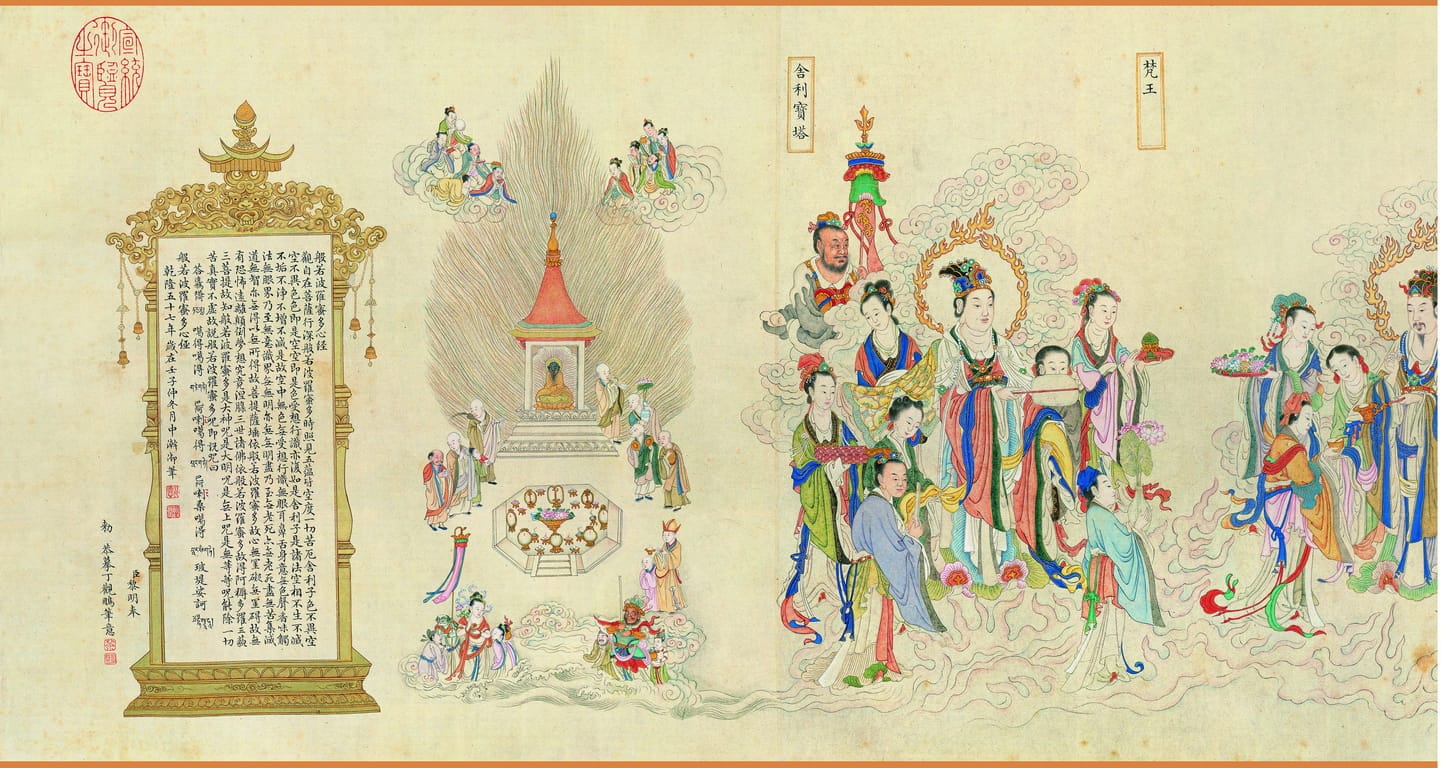 梵王
舍利寶塔
般若波羅蜜多心經
觀自在菩薩行深般若波羅蜜多時照見五蘊皆空度一切苦厄舍利子色不異空
空不異色色即是空空即是色受想行識亦復如是舍利子是諸法空相不生不滅
不垢不淨不增不減是故空中無色無受想行識無眼耳鼻舌身意無色聲香味觸
法無眼界乃至無意識界無無明亦無無明盡乃至無老死亦無老死盡無苦集滅
道無智亦無得以無所得故菩提薩埵依般若波羅蜜多故心無罣礙無罣碍故無
有恐怖遠離顛倒夢想究竟涅槃三世諸佛依般若波羅蜜多故得阿耨多羅三藐
三菩提故知般若波羅蜜多是大神咒是大明咒是無上咒是無等等咒能除一切
苦真實不虛故說般若波羅蜜多咒即說咒曰
噶得噶得 喇噶得 喇桑噶得 玻堤娑訶
般若波羅蜜多心經
乾隆五十七年歲在壬子仲冬月中澣御筆
臣黎明奉
勅恭摹丁觀鵬筆意
宣統御覽之寶